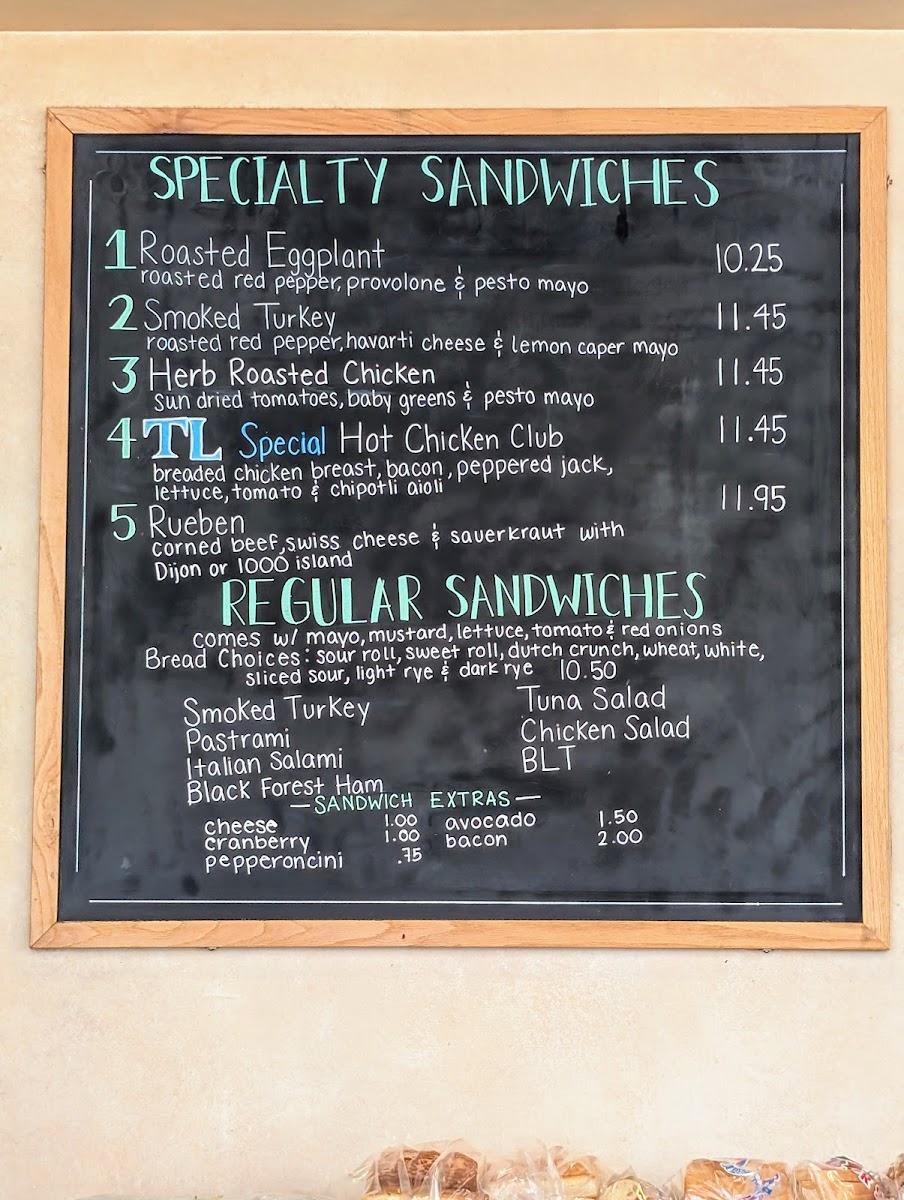 SPECIALTY SANDWICHES
1 Roasted Eggplant 10.25
roasted red pepper, provolone & pesto mayo
2 Smoked Turkey 11.45
roasted red pepper, havarti cheese & lemon caper mayo
3 Herb Roasted Chicken 11.45
sun dried tomatoes, baby greens & pesto mayo
4 TL Special Hot Chicken Club 11.45
breaded chicken breast, bacon, peppered jack,
lettuce, tomato & chipotli aioli
5 Rueben 11.95
corned beef, swiss cheese & sauerkraut with
Dijon or 1000 island
REGULAR SANDWICHES
comes w/ mayo, mustard, lettuce, tomato & red onions
Bread Choices: sour roll, sweet roll, dutch crunch, wheat, white,
sliced sour, light rye & dark rye 10.50
Smoked Turkey
Pastrami
Italian Salami
Black Forest Ham
Tuna Salad
Chicken Salad
BLT
—SANDWICH EXTRAS—
cheese 1.00
cranberry 1.00
pepperoncini .75
avocado 1.50
bacon 2.00